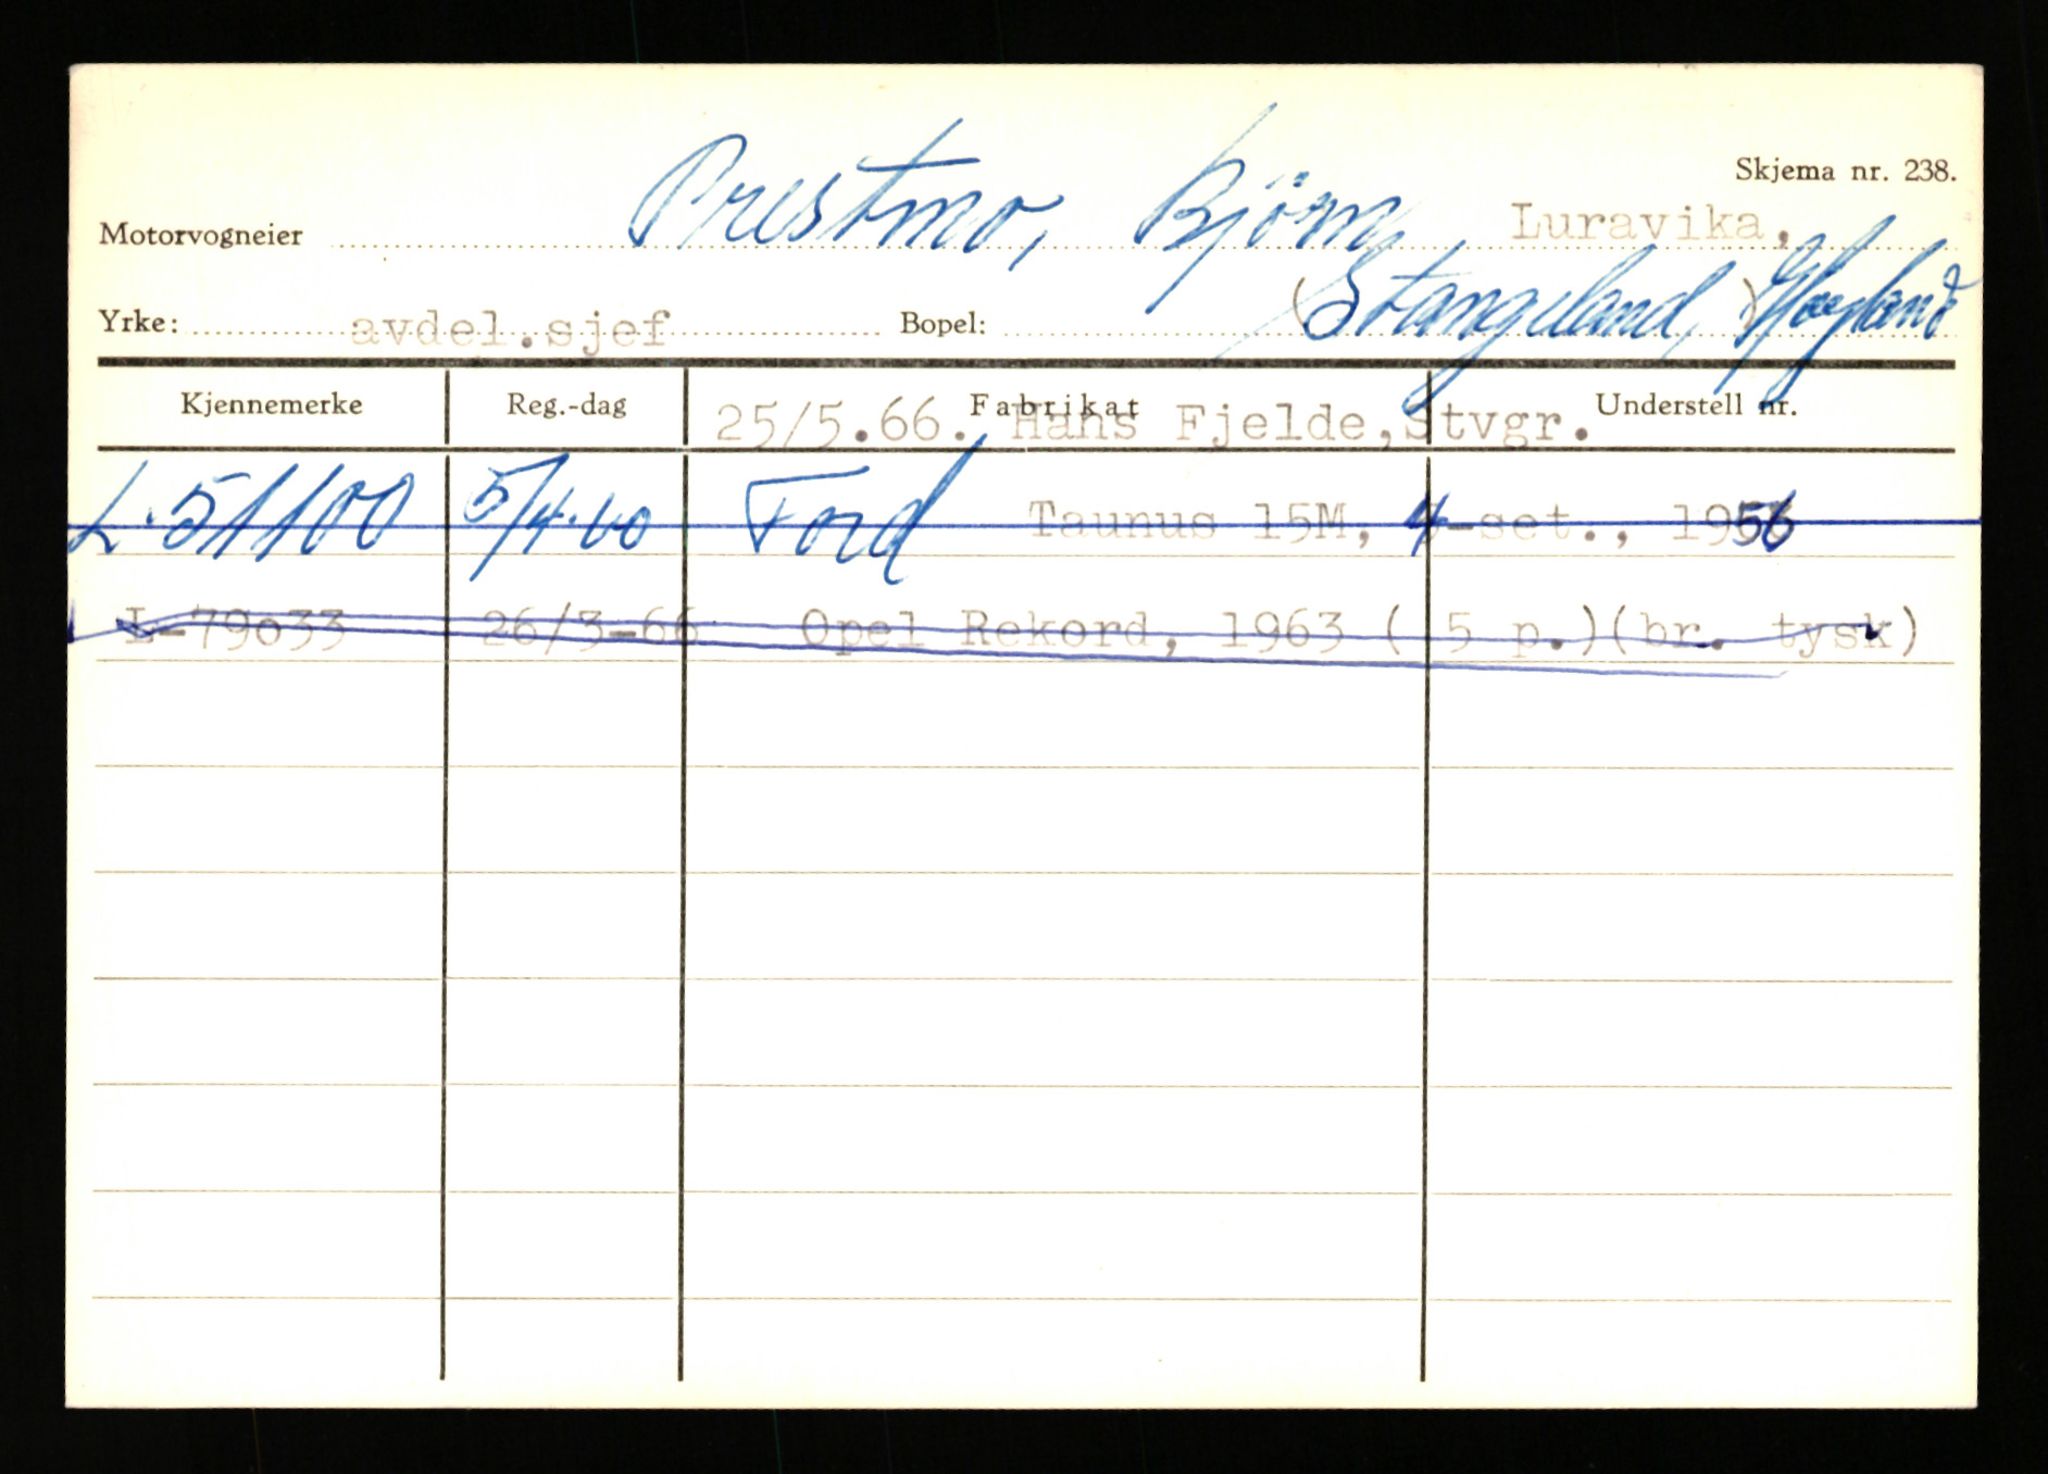 Skjema nr. 238.
Motorvogneier Prestmo, Björn Luravika,
Yrke: avdel.sjef Bopel: (Stangeland,) Høyland
Kjennemerke Reg.-dag Fabrikat Understell nr.
25/5.66. Hans Fjelde,Stvgr.
L-51100 5/4.60 Ford Taunus 15M, 4-set., 1956
L-79o33 26/3-66 Opel Rekord, 1963 ( 5 p.)(br. tysk)